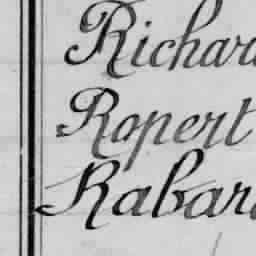 Richar
Ropert
Rabar